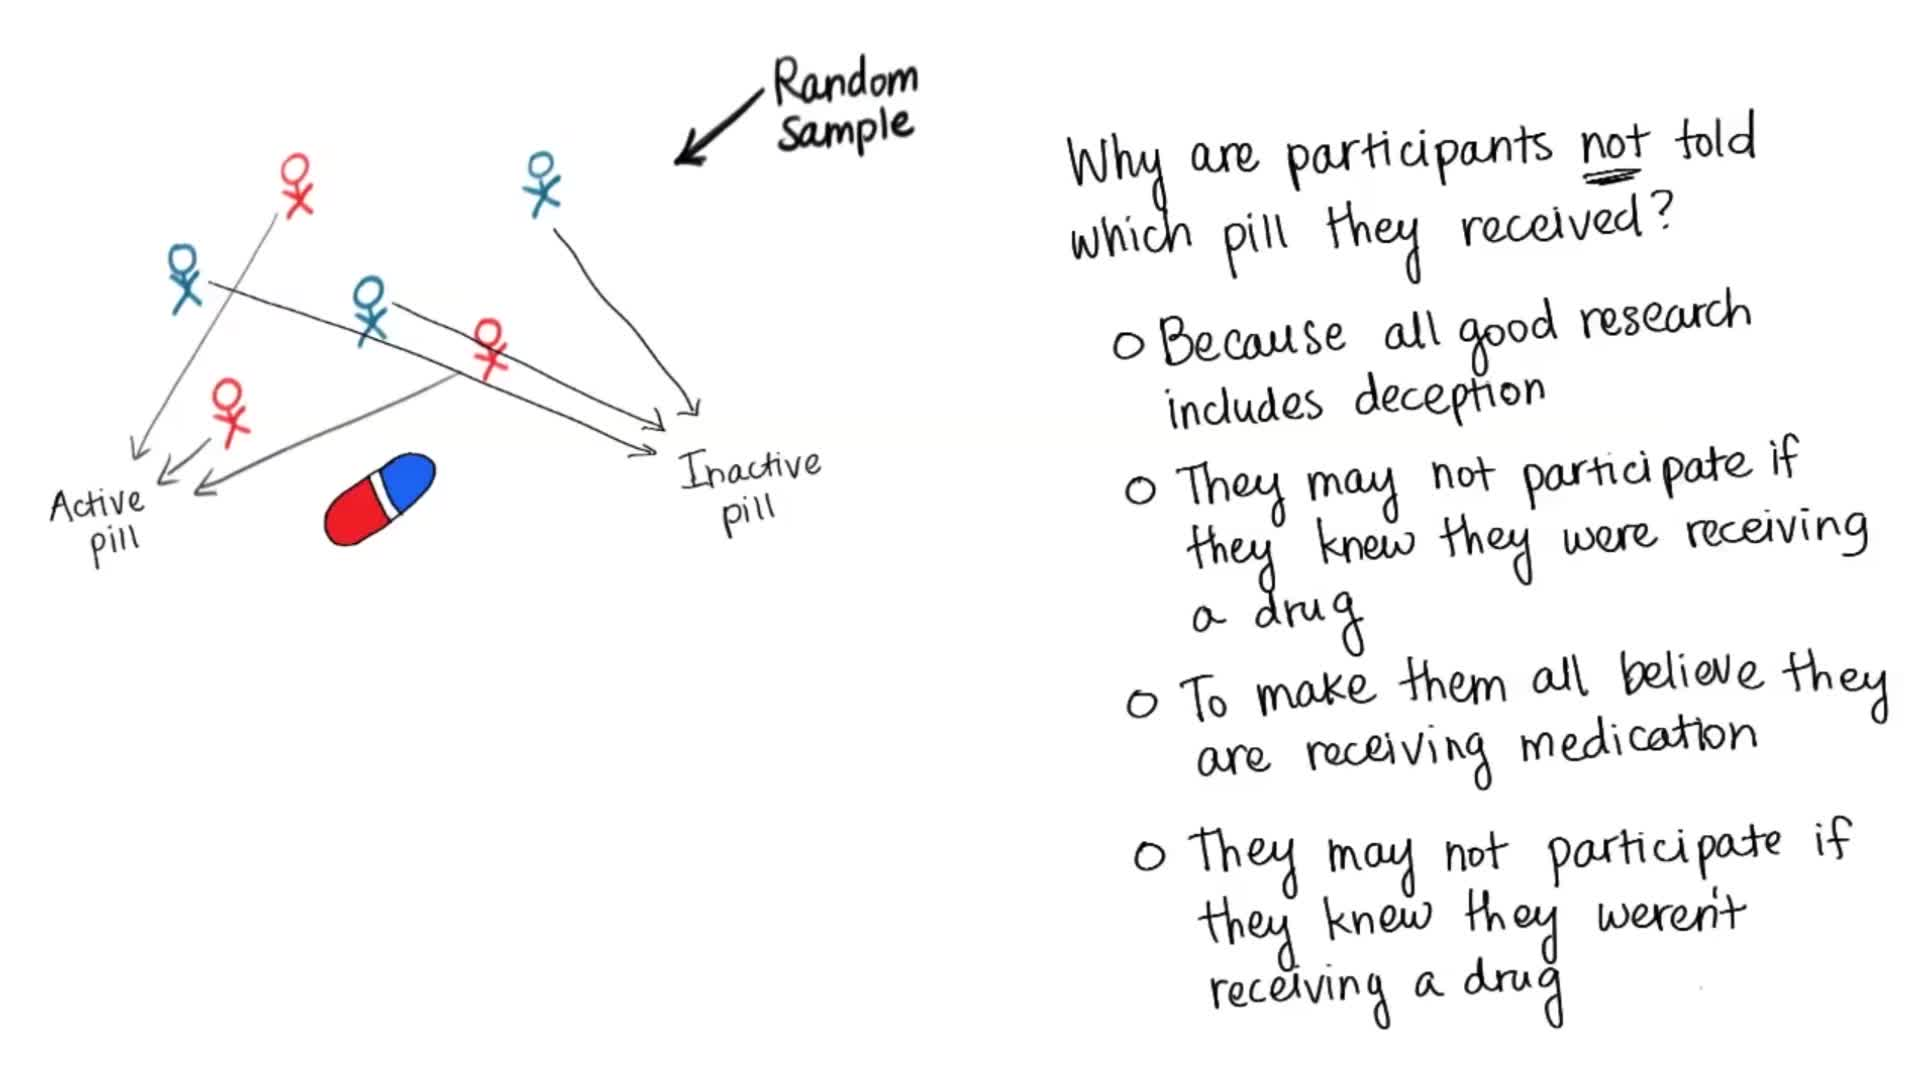 Random
Sample
Active
pill
Inactive
pill
Why are participants not told
which pill they received?
Because all good research
includes deception
They may not participate if
they knew they were receiving
a drug
To make them all believe they
are receiving medication
They may not participate if
they knew they weren't
receiving a drug